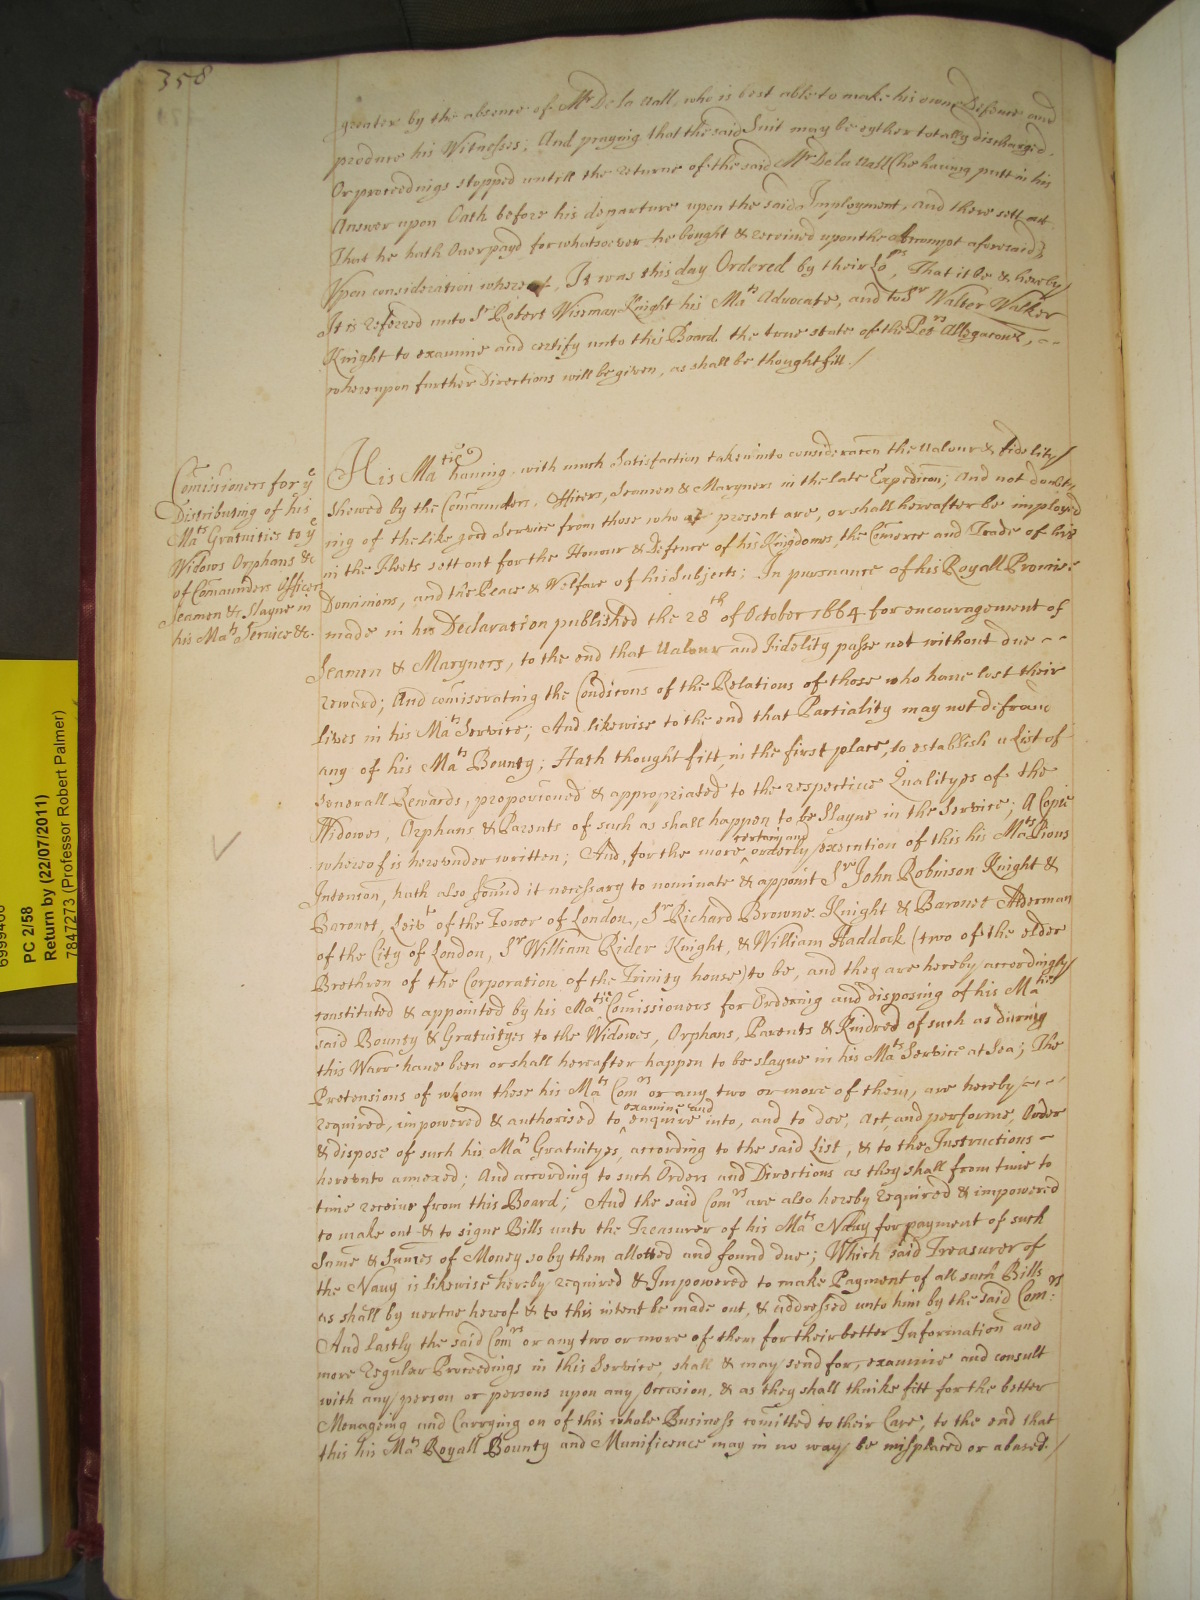 358
greater by the absence of Mr De la Vall, who is best able to make his owne Defence and
produce his Witnesses; And praying that the said Suit may be eyther totally discharged,
Or proceedings stopped untill the returne of the said Mr De la Vall (he having putt in his
Answer upon Oath before his departure upon the said Imployment, and there sett out
That he hath Overpayd for whatsoever he bought & received upon the Accompt aforesaid;)
Upon consideration whereof, It was this day Ordered by their Lops, That it be & hereby
It is referred unto Sr Robert Wiseman Knight his Mats Advocate, and to Sr Walter Walker
Knight to examine and certify unto this Board the true state of the Petrs Allegacons, --
whereupon further Directions will be given, as shall be thought fitt./
Comissioners for ye
Distributing of his
Mats Gratuities to ye
Widows Orphans &c
of Comaunders Officers
Seamen &c Slayne in
his Mats Service &c.
His Matie having with much Satisfaction taken into consideracon the Valour & fidelity
shewed by the Comaunders, Officers, Seamen & Maryners in the late Expedicon; And not doubt,
ing of the like good Service from those who at present are, or shall hereafter be imployed
in the Fleets sett out for the Honour & Defence of his Kingdomes, the Comerce and Trade of his
Dominions, and the Peace & Welfare of his Subjects; In pursuance of his Royall Promise
made in his Declaration published the 28th of October 1664 for encouragement of
Seamen & Maryners, to the end that Valour and Fidelity passe not without due --
reward; And comiserating the Condicons of the Relations of those who have lost their
lives in his Mats Service; And likewise to the end that Partiality may not defraud
any of his Mats Bounty; Hath thought fitt, in the first place, to establish a List of
severall Rewards, proporcioned & appropriated to the respective Qualityes of the
Widowes, Orphans & Parents of such as shall happen to be Slayne in the Service; A Copie
certain and
whereof is hereunder written; And, for the more ^ orderly execution of this his Mats Pious
Intencon, hath also found it necessary to nominate & appoint Sr John Robinson Knight &
Baronet, Leivt of the Tower of London, Sr Richard Browne Knight & Baronet Alderman
of the City of London, Sr William Rider Knight, & William Haddock (two of the elder
Brethren of the Corporation of the Trinity house) to be, and they are hereby accordingly
constituted & appointed by his Matie Comissioners for Ordering and disposing of his Maties
said Bounty & Gratuityes to the Widowes, Orphans, Parents & Kindred of such as during
this Warr have been or shall hereafter happen to be slayne in his Mats Service at Sea; The
Pretensions of whom these his Mats Comrs or any two or more of them, are hereby --
examine and
required, impowered & authorised to ^ enquire into, and to doe, act, and performe, Order
& dispose of such his Mats Gratuityes, according to the said List, & to the Instructions -
hereunto annexed; And according to such Orders and Directions as they shall from time to
time receive from this Board; And the said Comrs are also hereby required & impowered
to make out & to signe Bills unto the Treasurer of his Mats Navy for payment of such
Sume & Sumes of Money so by them allotted and found due; Which said Treasurer of
the Navy is likewise hereby required & Impowered to make Payment of all such Bills
as shall by vertue hereof & to this intent be made out, & addressed unto him by the said Comrs:
And lastly the said Comrs or any two or more of them for their better Information and
more regular Proceedings in this Service, shall & may send for, examine and consult
with any person or persons upon any Occasion, & as they shall thinke fitt for the better
Menageing and Carrying on of this whole Business comitted to their Care, to the end that
this his Mats Royall Bounty and Munificence may in no way be misplaced or abused./
PC 2/58
Return by (22/07/2011)
7847273 (Professor Robert Palmer)